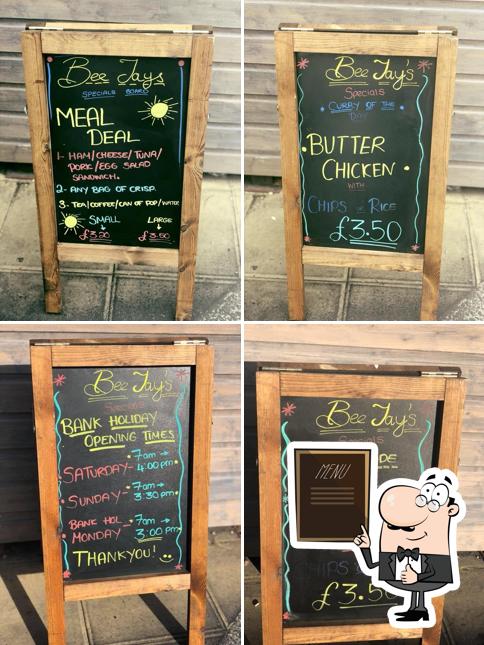 Bee Jays
SPECIALS BOARD
MEAL
DEAL
1- HAM/CHEESE/TUNA/
PORK/EGG SALAD
SANDWICH.
2- ANY BAG OF CRISP.
3- TEA/COFFEE/CAN OF POP/WATER
SMALL LARGE
£3.20 £3.50
Bee Jay's
Specials
CURRY OF THE
DAY
BUTTER
CHICKEN
WITH
CHIPS or RICE
£3.50
Bee Jay's
BANK HOLIDAY
OPENING TIMES
SATURDAY- 7am →
4:00pm
SUNDAY- 7am →
3:30pm
BANK HOL 7am →
MONDAY - 3:00pm
THANKYOU!
Bee Jay's
Specials
MENU
£3.50